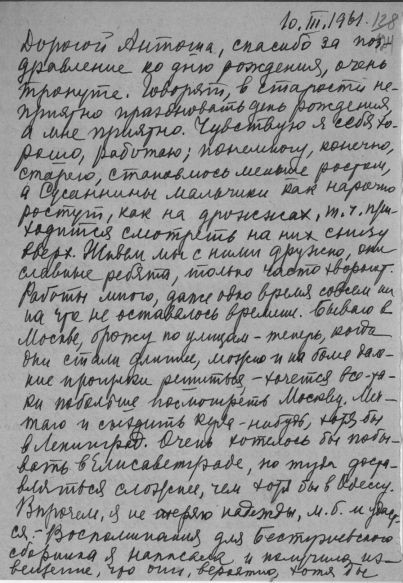 10.III.1961. 128
Дорогой Антоша, спасибо за поз-
дравление ко дню рождения, очень
тронута. Говорят, в старости не-
приятно праздновать день рождения,
а мне приятно. Чувствую я себя хо-
рошо, работаю; понемногу, конечно,
старею, становлюсь меньше ростом,
а Сусаннины мальчики как нарочно
растут, как на дрожжах, т.ч. при-
ходится смотреть на них снизу
вверх. Живем мы с ними дружно, они
славные ребята, только часто хворают.
Работы много, даже одно время совсем ни
на что не оставалось времени. Бываю в
Москве, брожу по улицам – теперь, когда
дни стали длиннее, можно и на более дале-
кие прогулки решиться, – хочется все-та-
ки побольше посмотреть Москву. Меч-
таю и съездить куда-нибудь, хотя бы
в Ленинград. Очень хотелось бы побы-
вать в Елисаветграде, но туда доста-
вляться сложнее, чем хотя бы в Одессу.
Впрочем, я не теряю надежды, м.б. и удаст-
ся. – Воспоминания для Бестужевского
сборника я написала и получила из-
вещение, что они, вероятно, хотя бы